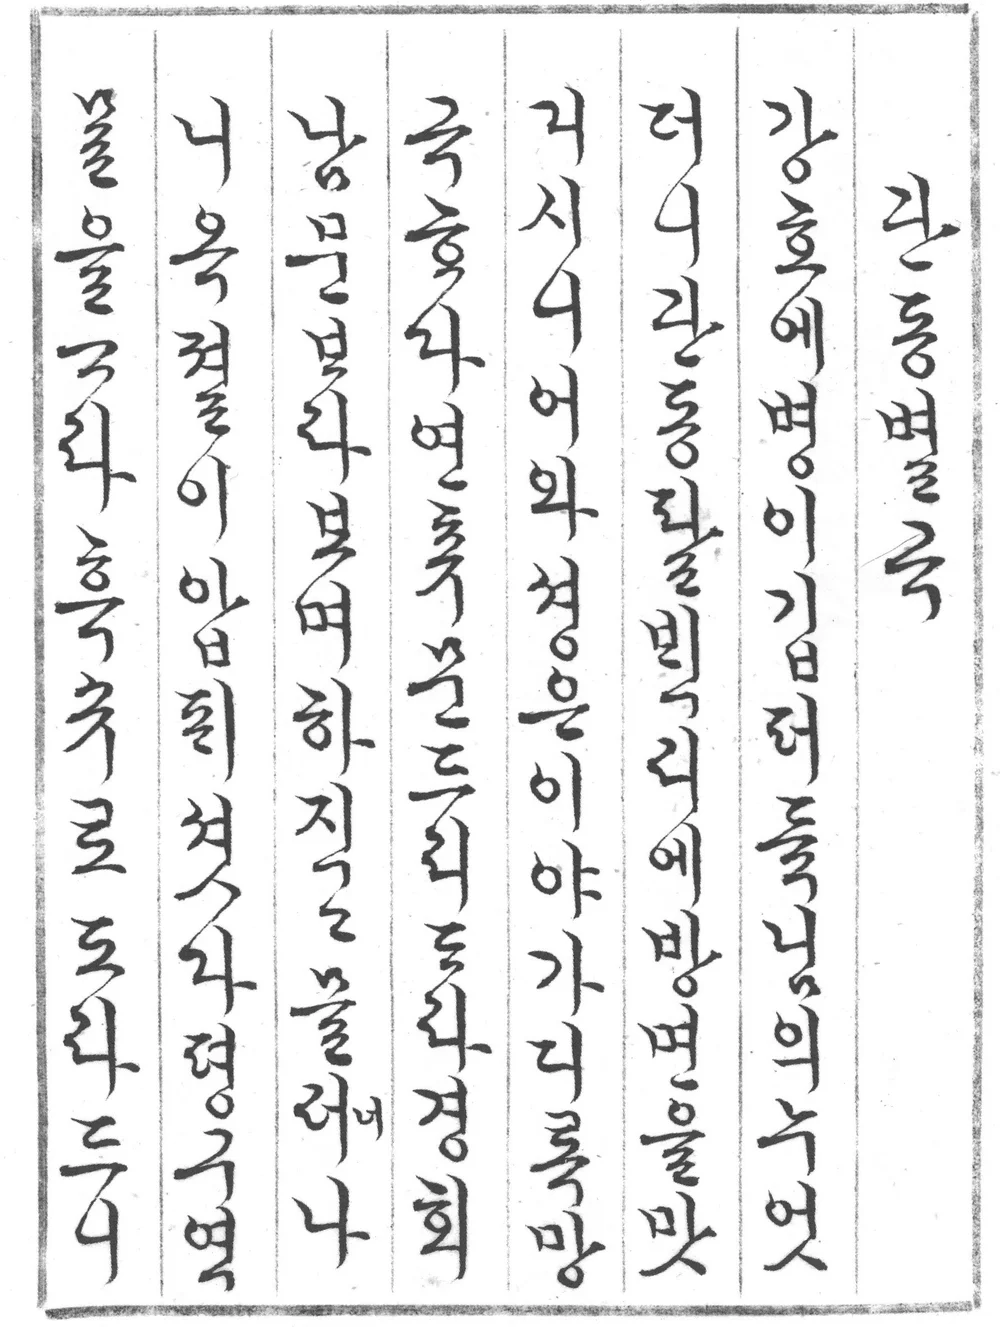 관동별곡
강호에병이깁퍼듁님의누엇
더니관동팔ᄇᆡᆨ리에방면을맛
디시니어와셩은이야가디록망
극ᄒᆞ다연츄문드리ᄃᆞ라경회
남문ᄇᆞ라보며하직고믈러너나
니옥졀이압희셧다평구역
믈을ᄀᆞ라흑슈로도라드니